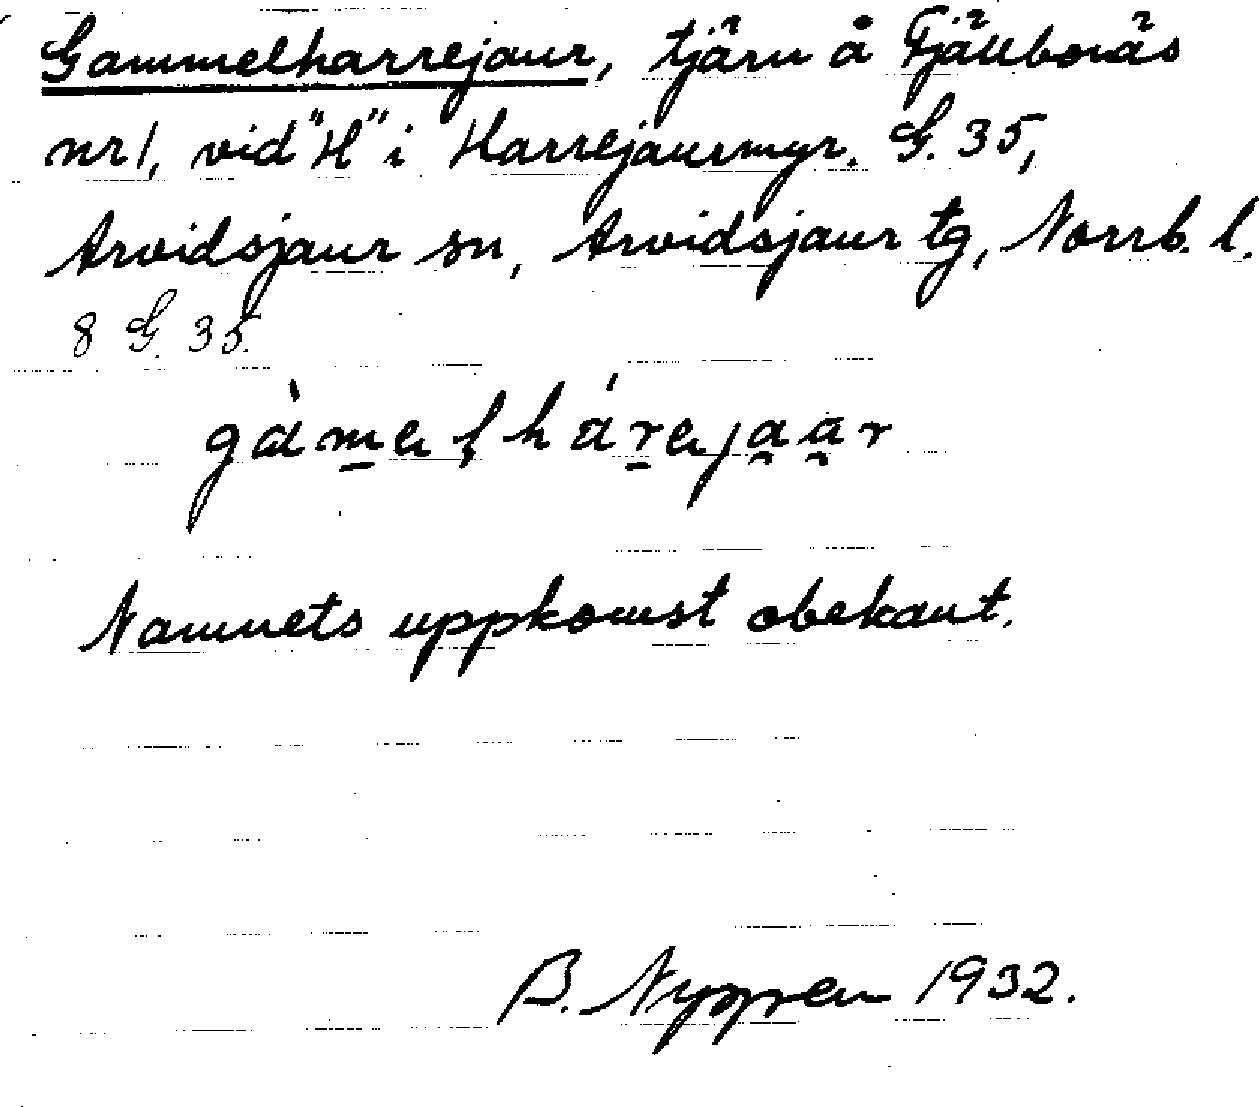 Gammelharrejaur, tjärn å Fjällbonäs
nr 1, vid "H" i Harrejaurmyr. G. 35,
Arvidsjaur sn, Arvidsjaur tg, Norrb. l.
8 G. 35.
gàmelhárejaar
Namnets uppkomst obekant.
B. Nyppen 1932.